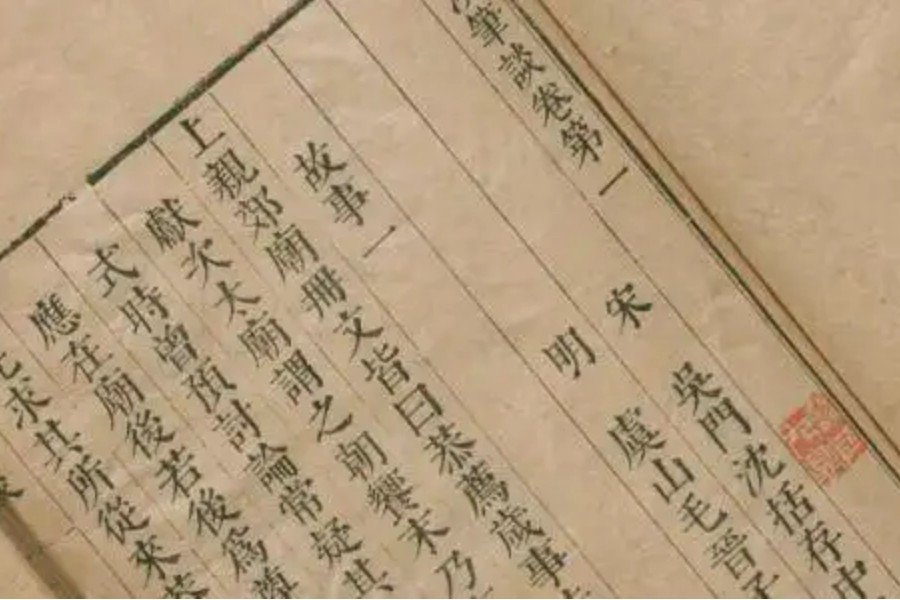 筆談卷第一
宋 吳門沈括存中
明 虞山毛晉子
故事一
上親郊廟冊文皆曰恭薦歲事
獻次太廟謂之朝饗末乃
式時曾預討論常疑其
應在廟後若後爲
求其所從來